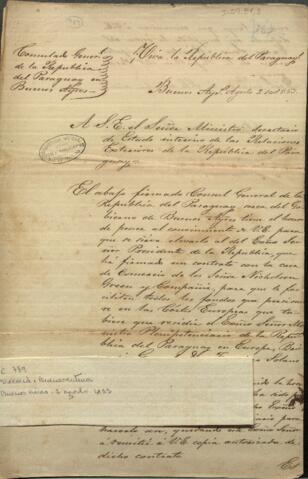 Consulado Genl
de la Republica
del Paraguay en
Buenos Ayres
¡Viva la Republica del Paraguay!
Buenos Ayres Agosto 2 de 1853.
A S. E. el Señor Ministro Secretario
de Estado interino de las Relaciones
Exteriores de la República del Par
aguay.
El abajo firmado Consul General de la
Republica del Paraguay, cerca del Go
bierno de Buenos Ayres tiene el honor
de poner al conocimiento de V.E. para
que se sirva elevarlo al del Exmo Señor
Presidente de la Republica, que
ha firmado un contrato con la casa
de Comercio de los Señores Nicholson
Green y Compañia, para que le fa
ciliten todos los fondos que precise
en las Cortes Europeas que tu
biere que residir el Exmo Señor Mi
nistro Plenipotenciario de la Repub
lica del Paraguay en Europa, Bri
Solano
C 779
Buenaventura
Buenos Aires - 2 agosto 1853
la hon
Exmo
para
Señor
remitir á V.E. copia autorizada de
dicho contrato